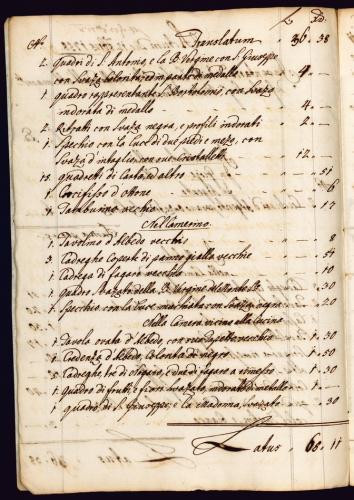 Translatum " 36 " 38
2. Quadri di S. Antonio, e la B. Vergine con S. Giuseppe
con Svaza colorita ed in parte di medallo " 4 "
1. quadro rappresentante S. Bortolomio con Svaza
indorata di medallo " 4 "
2. Retratti con Svaza negra, e profili indorati
1. Specchio con la Luce di due piedi e mezo, con
Svaza d'intaglio con sue Cristalletti " 12 "
15. quadretti di Carta, ed altro " " 51
1. Crocifisso d'ottone " " 6
1. Tamburino vecchio " " 17
Nel Camerino
1. Tavolino d'Albedo vecchio " " 8
3. Cadreghe Coperte di panno giallo vecchie " " 54
1. Cadrega di vecchio " " 10
1. Quadro Svazato della B. Vergine " " 30
1. Specchio con la Luce con Svaza negra " " 20
Nella Camera vicina alla Cucina
1. Tavola d'Albedo, con vecchio " 1 " 30
1. Credenza d'Albedo, Colorita di negro " 1 " 50
5. Cadreghe, tre di e due di " 1 " 30
1. Quadro di frutti, e fiori Svazato, indorato di medallo " 1 "
1. quadro di S. Giuseppe, e la Madonna, Svazato " " 30
Latus " 65 " 11